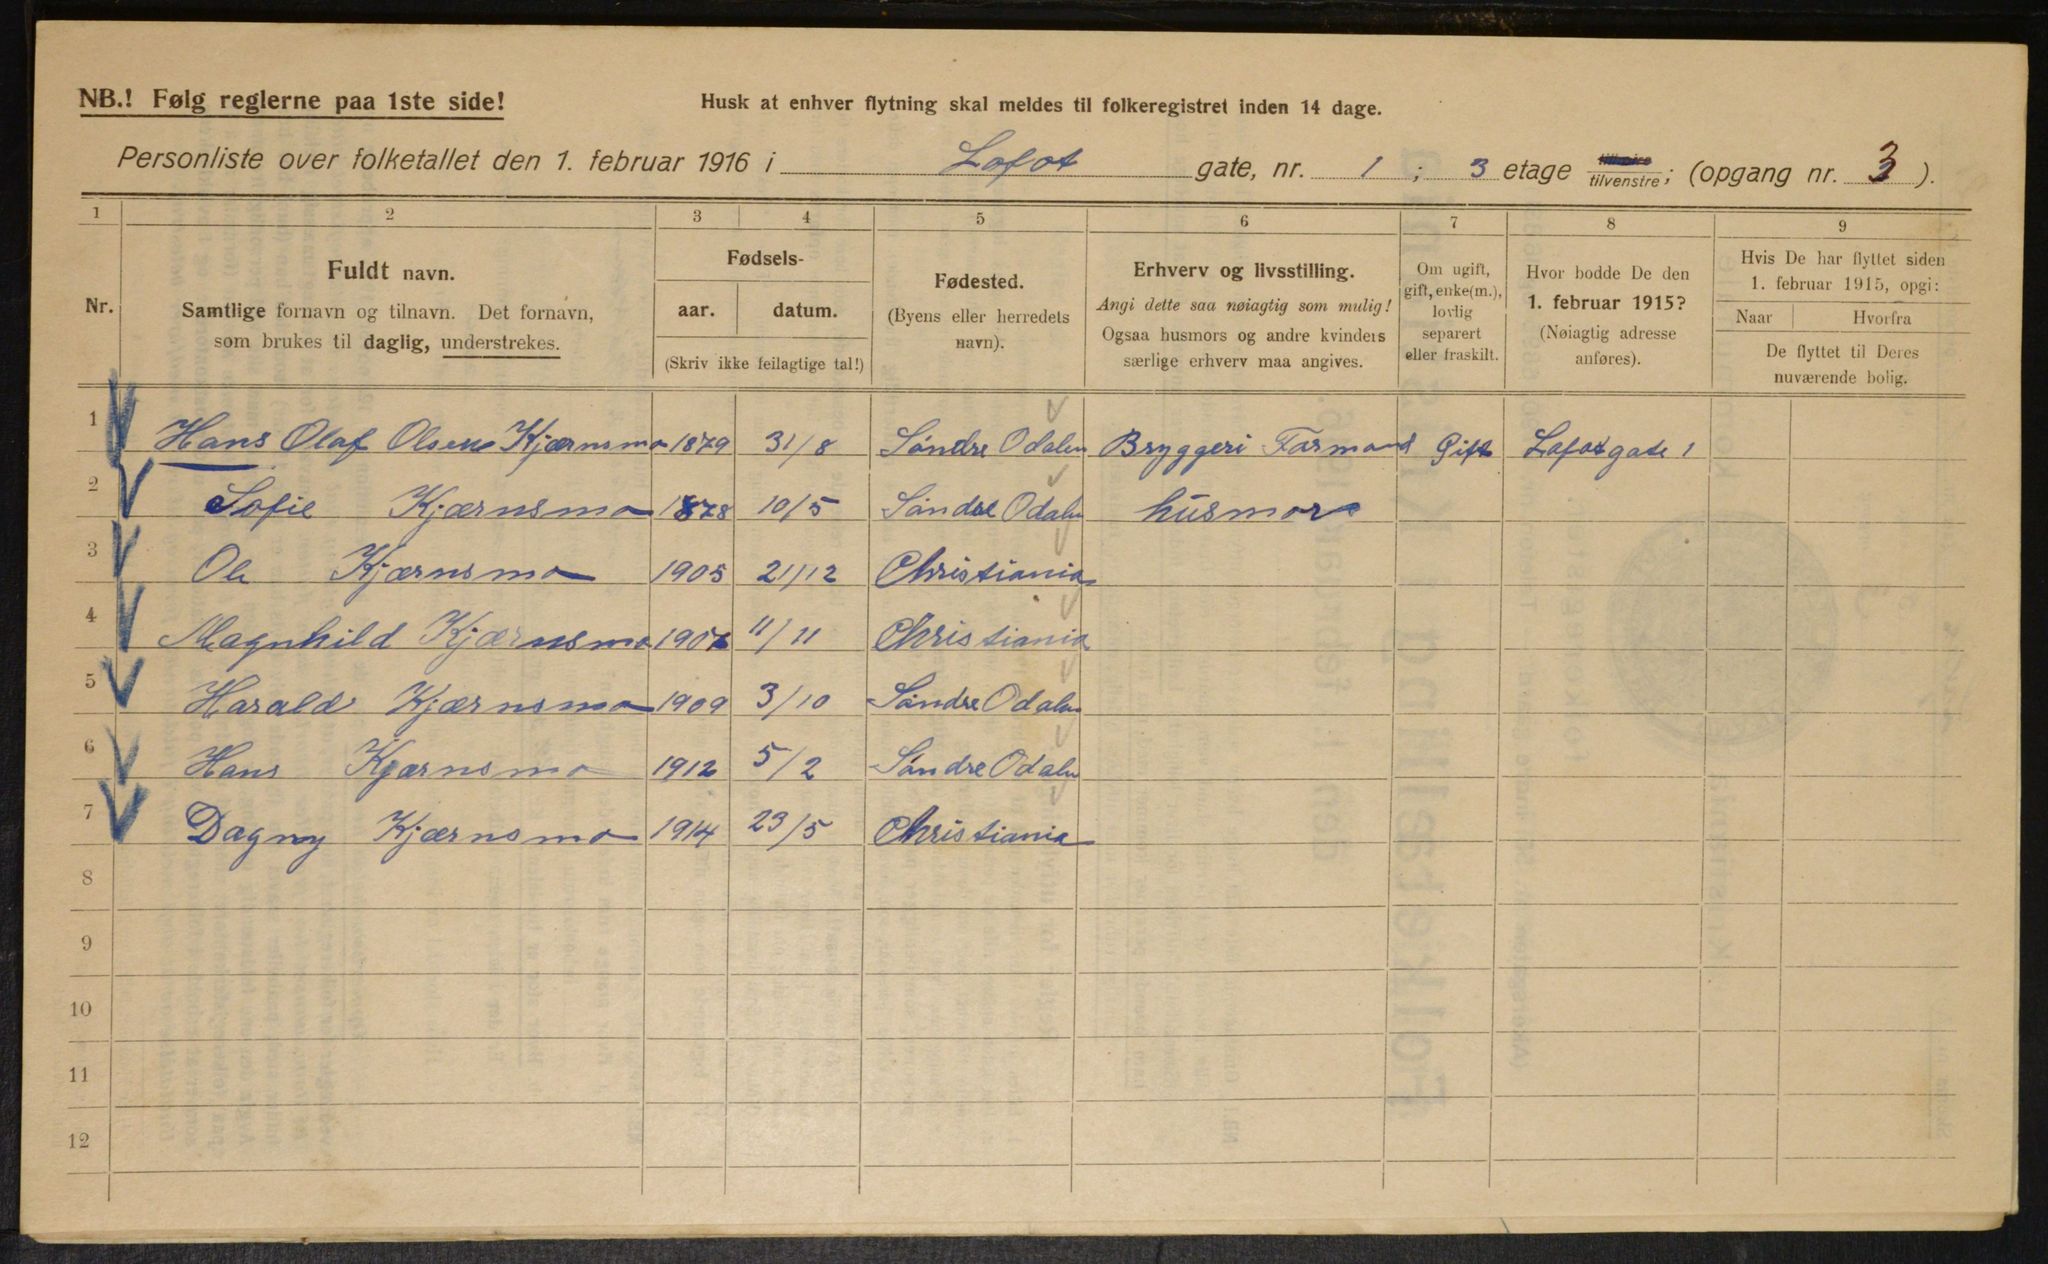 NB.! Følg reglerne paa 1ste side!
Husk at enhver flytning skal meldes til folkeregistret inden 14 dage.
Personliste over folketallet den 1. februar 1916 i Lofot gate, nr. 1 ; 3 etage tilvenstre; (opgang nr. 3 ).
1 2 3 4 5 6 7 8 9
Nr.
Fuldt navn.
Samtlige fornavn og tilnavn. Det fornavn,
som brukes til daglig, understrekes.
Fødsels-
aar. datum.
(Skriv ikke feilagtige tal!)
Fødested.
(Byens eller herredets
navn).
Erhverv og livsstilling.
Angi dette saa nøiagtig som mulig!
Ogsaa husmors og andre kvinders
særlige erhverv maa angives.
Om ugift,
gift, enke(m.),
lovlig
separert
eller fraskilt.
Hvor bodde De den
1. februar 1915?
(Nøiagtig adresse
anføres).
Hvis De har flyttet siden
1. februar 1915, opgi:
Naar Hvorfra
De flyttet til Deres
nuværende bolig.
1 Hans Olaf Olsen Kjærnsmo 1879 31/8 Söndre Odalen Bryggeri Formand Gift Lofotgate 1
2 Sofie Kjærnsmo 1878 10/5 Söndre Odalen husmor
3 Ole Kjærnsmo 1905 21/12 Christiania
4 Magnhild Kjærnsmo 1907 11/11 Christiania
5 Harald Kjærnsmo 1909 3/10 Söndre Odalen
6 Hans Kjærnsmo 1912 5/2 Söndre Odalen
7 Dagny Kjærnsmo 1914 23/5 Christiania
8
9
10
11
12